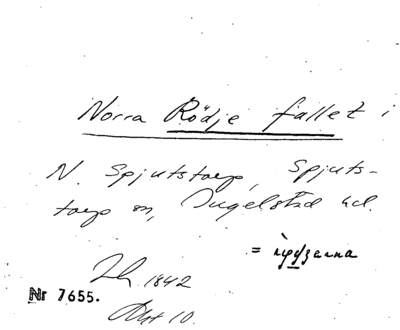 Norra Rödje fallet i
N. Spjutstorp, Spjuts-
torp sn, Ingelstad hd.
1842
Nr 7655.
Akt 10.